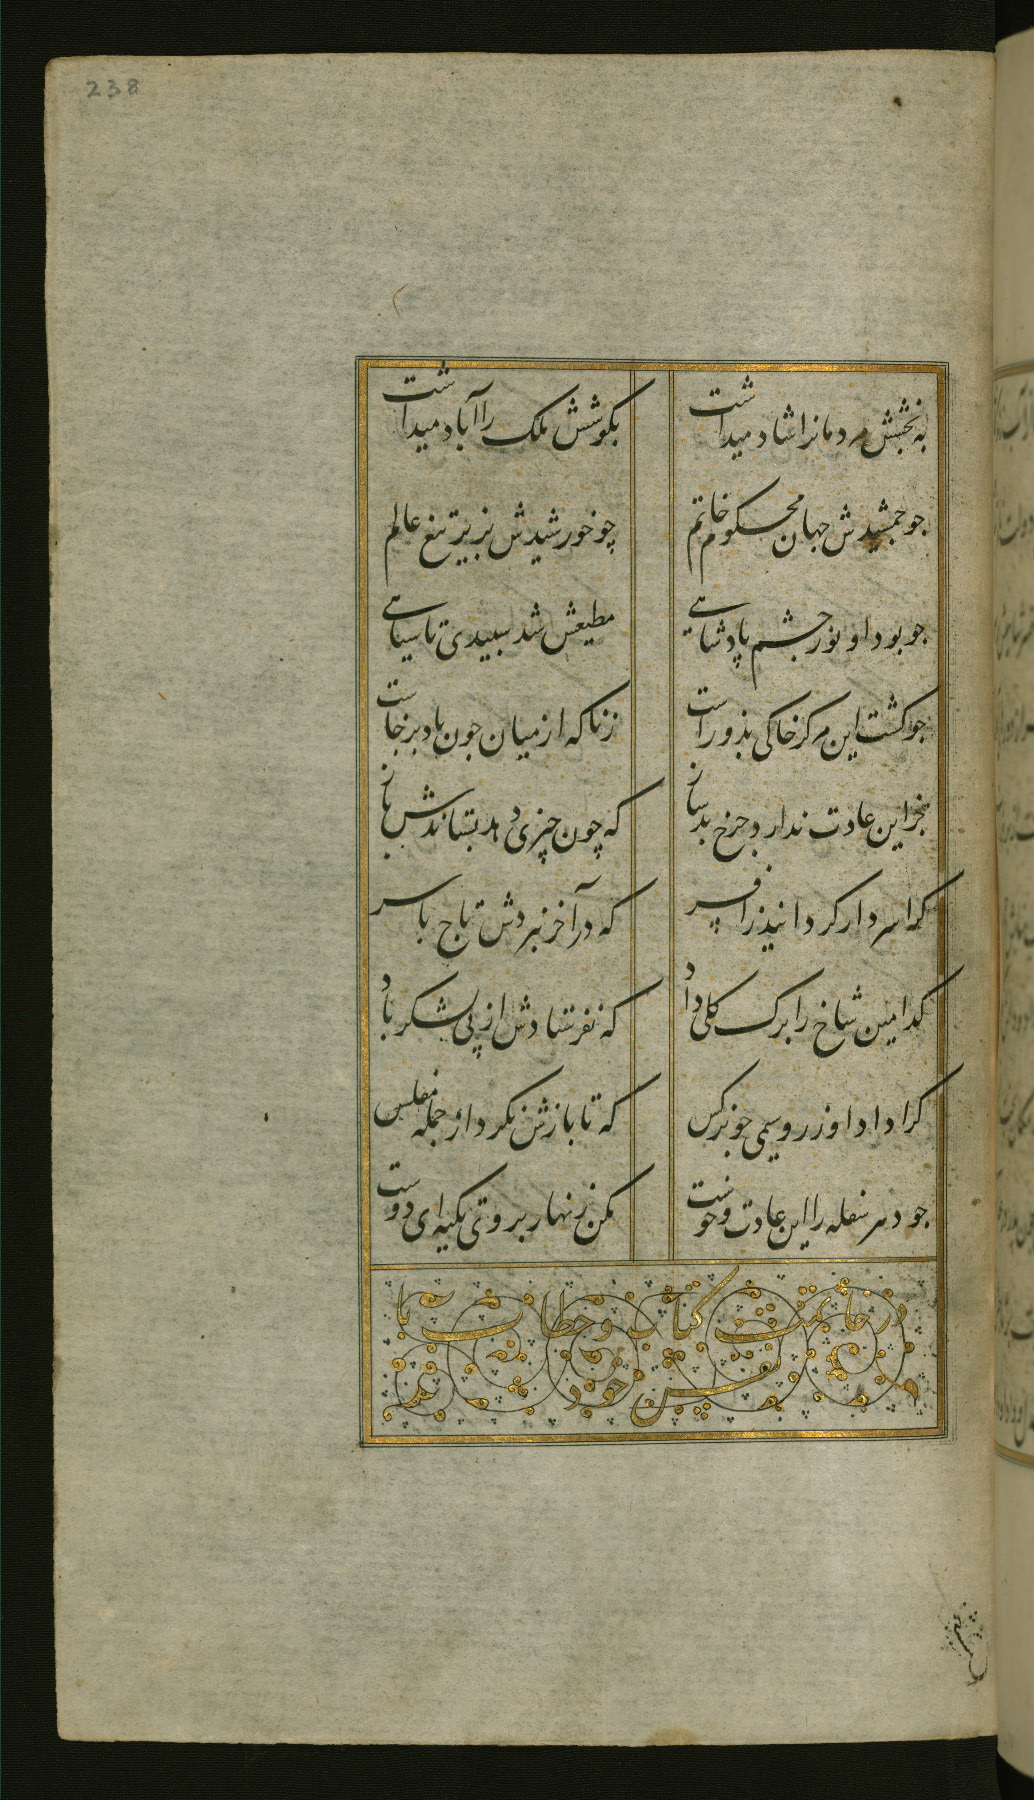 238
به بخشش مردمانرا شاد میداشت بکوشش ملک را آباد میداشت
جو جمشیدش جهان محکوم خاتم چو خورشیدش بزیر تیغ عالم
جو بود او نور جشم پادشاهی مطیعش شد سبیدی تا سیاهی
جو کشت این مرکز خاکی بذو راست زناکه از میان جون باد برخاست
بجز این عادت ندارد جرخ بد ساز که چون چیزی دهد بستاندش باز
کرا سردار کرد انیذر افسر که در آخر نبردش تاج با سر
کدامین شاخ را برک کلی داد که نفرستادش از پی لشکر باد
کرا داد او زر و سیمی جو نرکس که تا بازش نکرد از جمله مفلس
جو دهر سفله را این عادت و خوست مکن زنهار بر وی تکیه ای دوست
در خاتمت کتاب و خطاب با
نفس خود